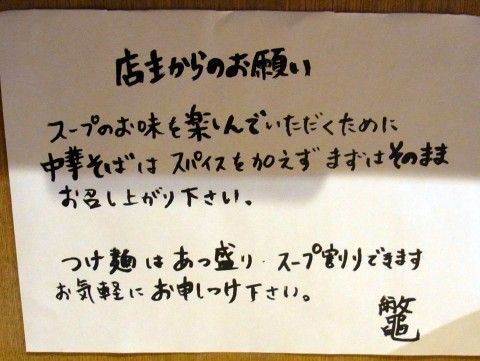 店主からのお願い
スープのお味を楽しんでいただくために
中華そばは スパイスを加えず まずは そのまま
お召し上がり下さい。
つけ麺は あつ盛り・スープ割りできます
お気軽に お申しつけ下さい。